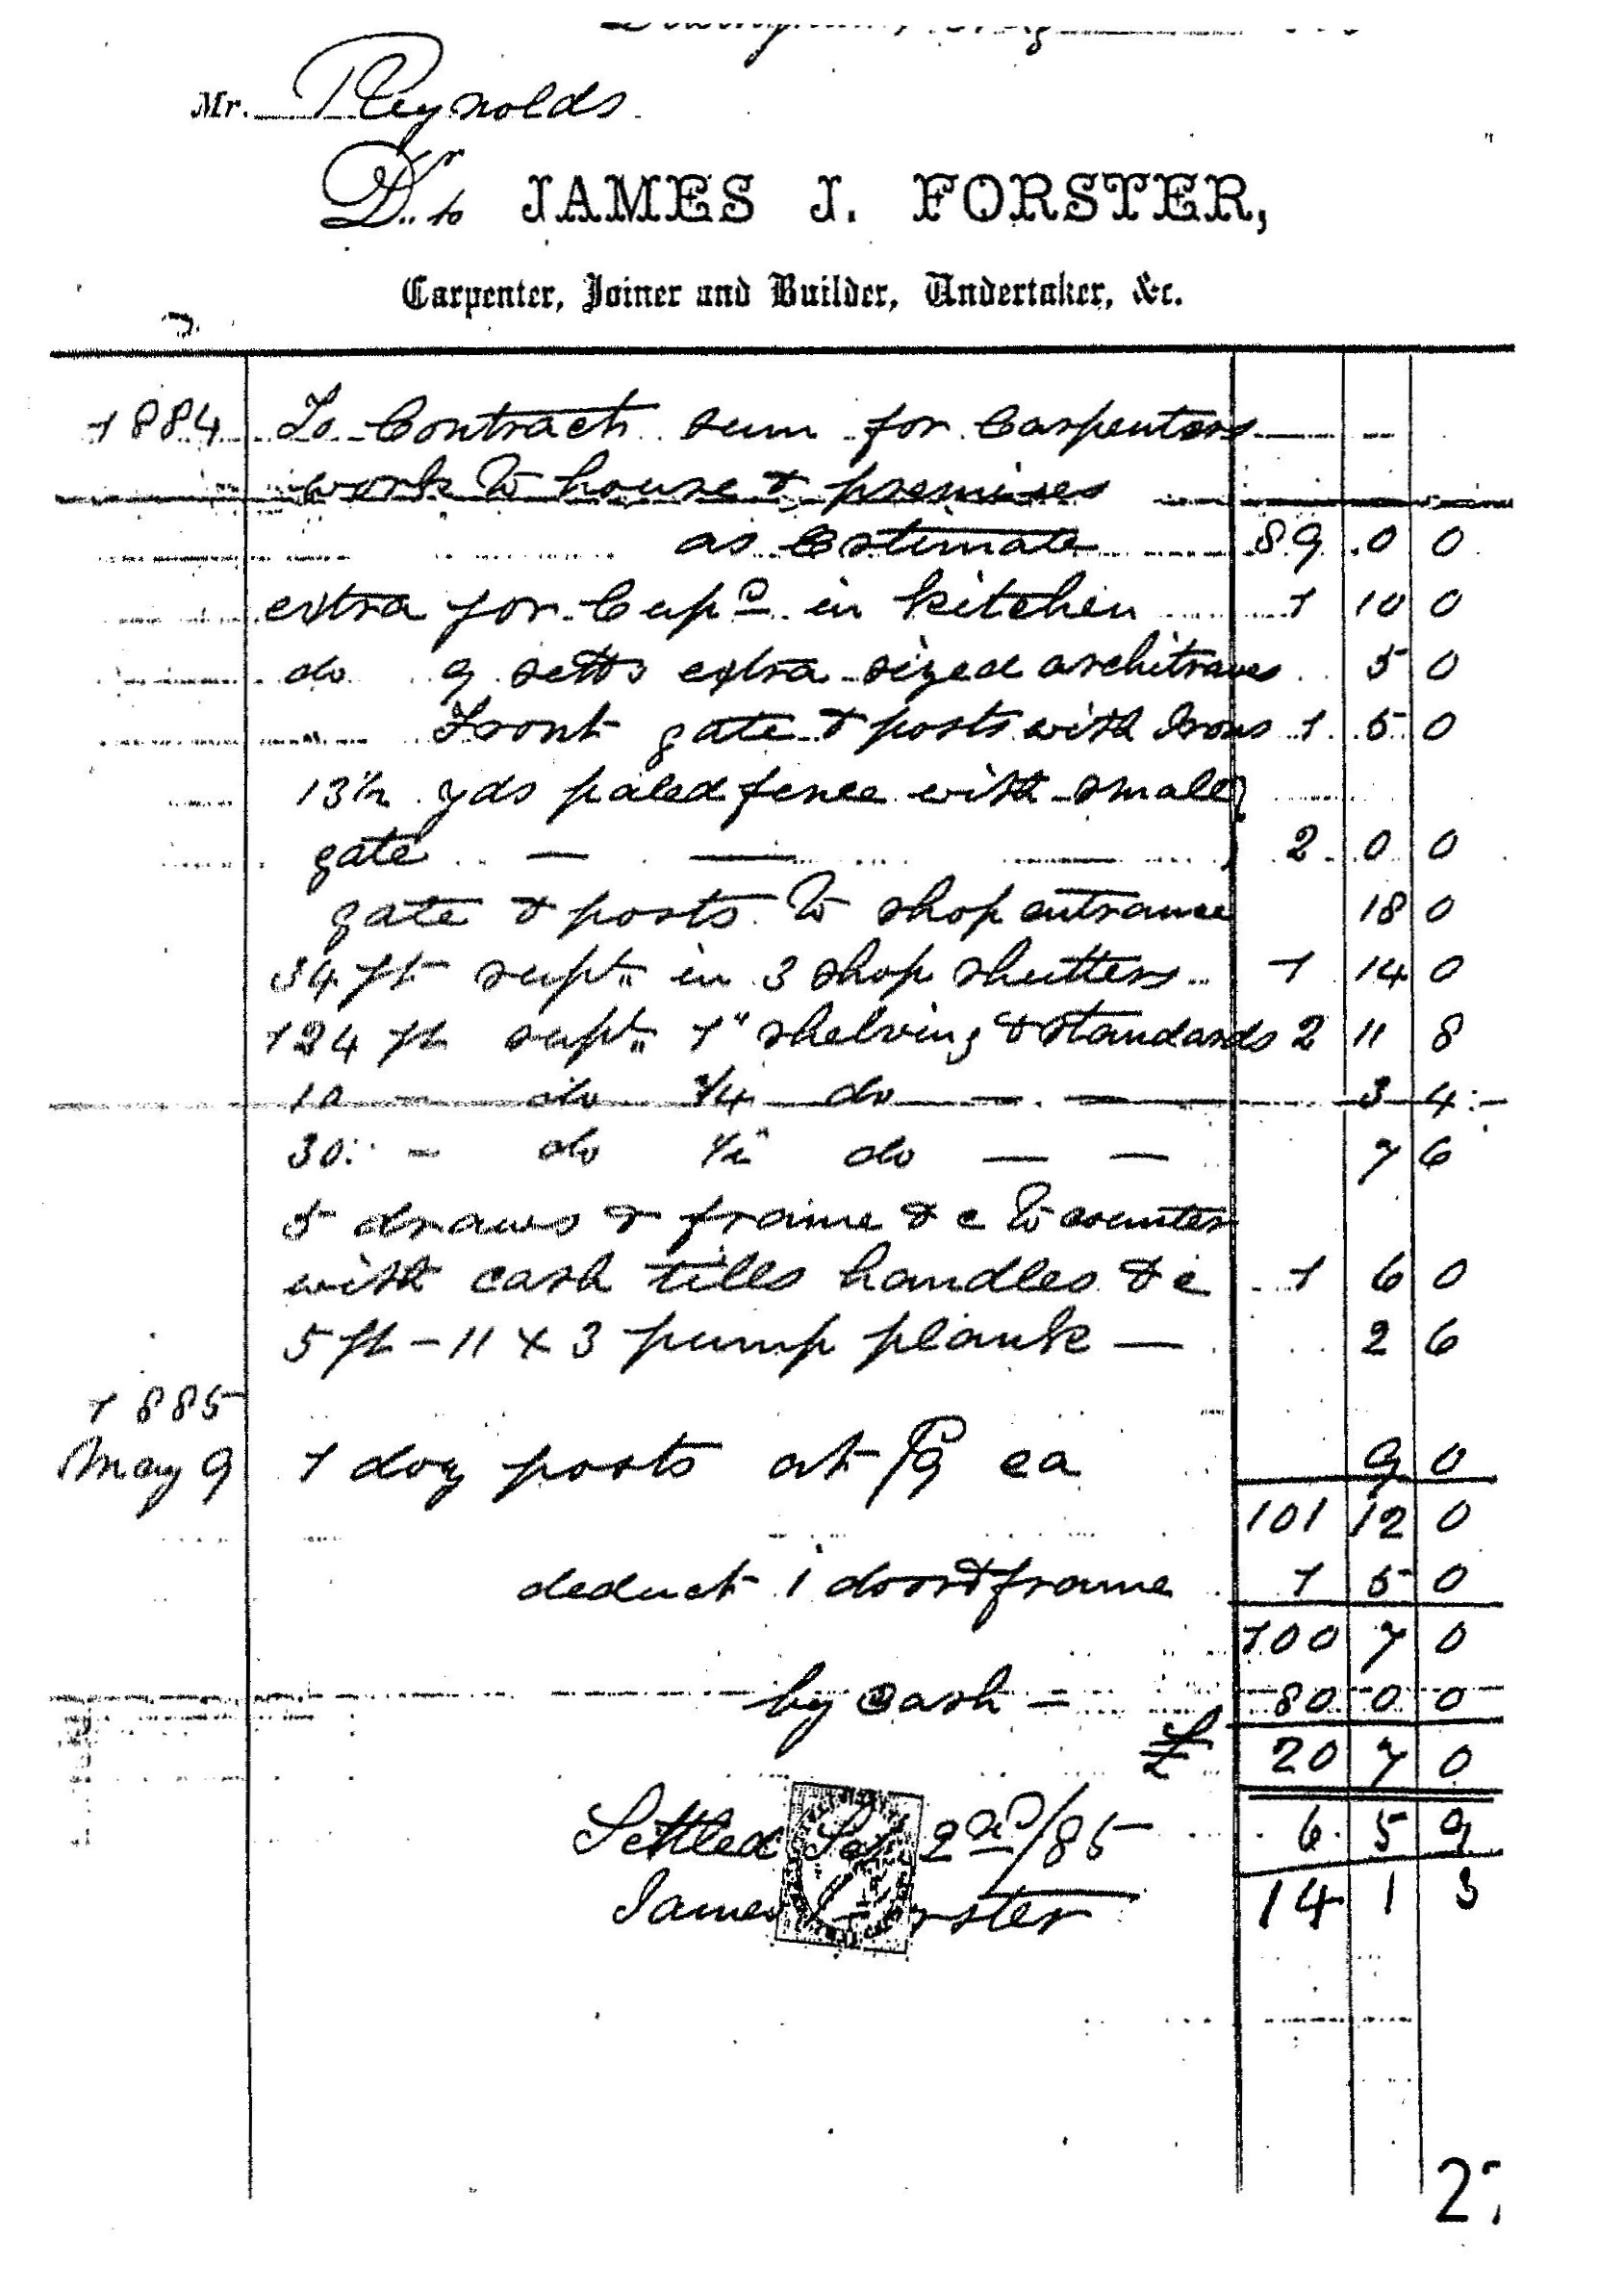 Mr. Reynolds
Dr. to JAMES J. FORSTER,
Carpenter, Joiner and Builder, Undertaker, &c.
1884 To Contract sum for Carpenters
work to house & premises
as Estimate 89 0 0
extra for Cupd in kitchen 1 10 0
do 9 setts extra sized architraves 5 0
Front gate & posts with Irons 1 5 0
13½ yds paled fence with small
gate — — 2 0 0
gate & posts to shop entrance 18 0
34 ft supl. in 3 shop shutters 1 14 0
124 ft supl. 1" shelving & standards 2 11 8
10 – do ¾ do — — 3 4
30 – do ½" do — — 7 6
5 draws & frame & c to counter
with cash tills handles & c 1 6 0
5 ft – 11 x 3 pump plank — 2 6
1885
May 9 1 doz posts at /9 ea 9 0
101 12 0
deduct 1 door & frame 1 5 0
100 7 0
by Cash – 80 0 0
£ 20 7 0
Settled 2nd/85 6 5 9
James rster 14 1 3